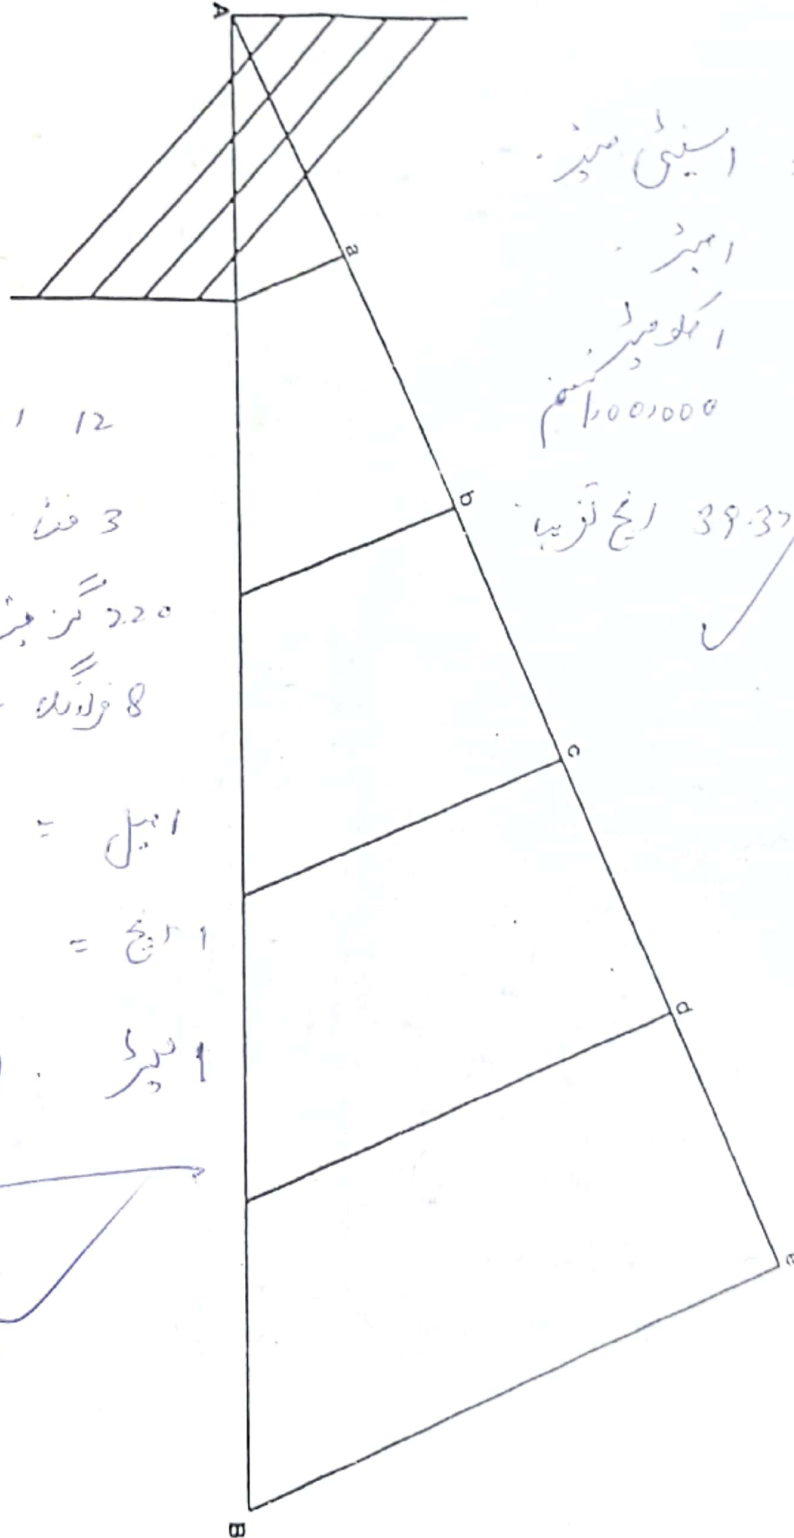 A
a
b
c
d
e
B
سینٹی میٹر
1 میٹر
1 کلومیٹر
1,00,000 سم
39.37 انچ تقریباً
12 ا
3 فٹ
220 گز
8 فرلانگ
1 میل =
1 انچ =
1 میٹر